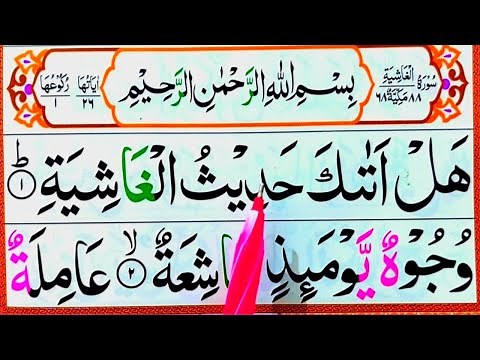 سُوۡرَةُ الۡغَاشِيَةِ
٨٨ مَكِّيَّةٌ ٦٨
بِسۡمِ اللهِ الرَّحۡمٰنِ الرَّحِيۡمِ
اٰيَاتُهَا ٢٦
رُكُوۡعُهَا ١
هَلۡ اَتٰٮكَ حَدِيۡثُ الۡغَاشِيَةِ ؕ ﴿١﴾
وُجُوۡهٌ يَّوۡمَئِذٍ خَاشِعَةٌ ۙ ﴿٢﴾ عَامِلَةٌ